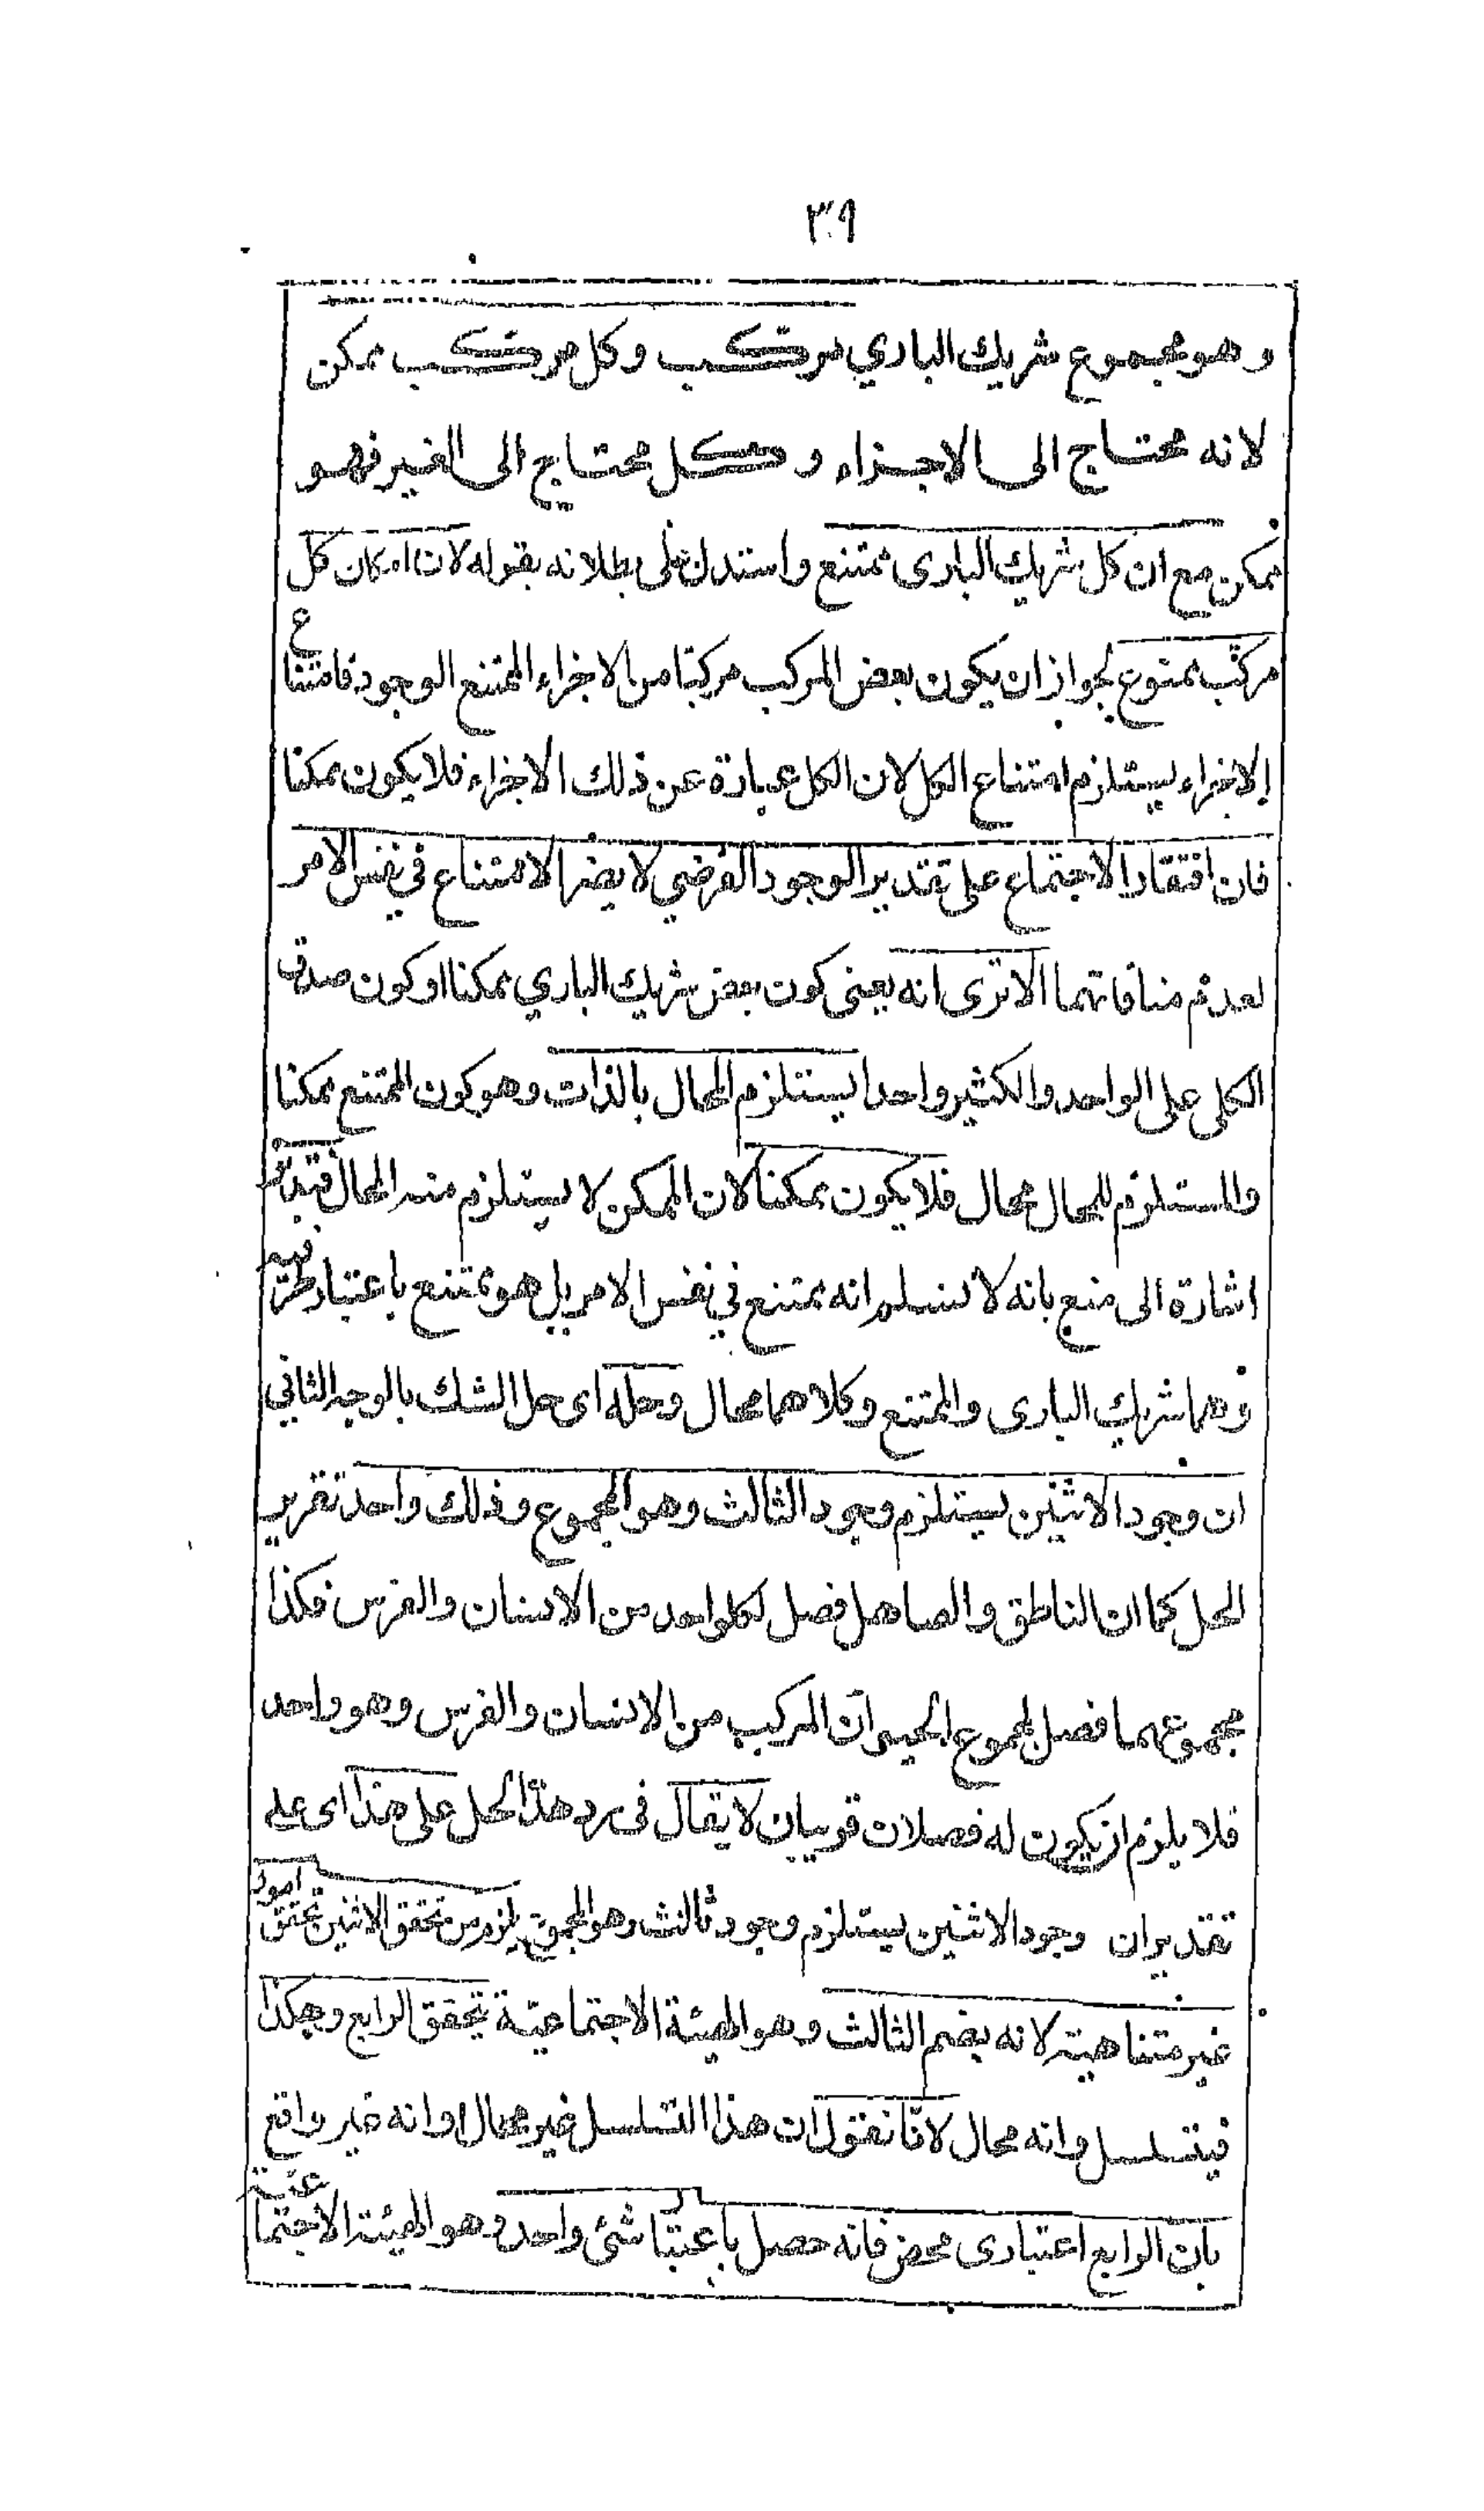 ٣٩
وهو مجموع شريك الباري مركب وكل مركب ممكن
لانه محتاج الى الاجزاء وكل محتاج الى الغير فهو
ممكن مع ان كل شريك البارى ممتنع واستدل على بطلانه بقوله لان امكان كل
مركب ممنوع لجواز ان يكون بعض المركب مركبا من الاجزاء الممتنع الوجود فامتناع
الاجزاء يستلزم امتناع الكل لان الكل عبارة عن ذلك الاجزاء فلا يكون ممكنا
فان افتقار الاجتماع على تقدير الوجود الفرضي لا يضر الامتناع في نفس الامر
لعدم منافاتهما الا ترى انه يعنى كون بعض شريك الباري ممكنا او كون صدق
الكلى على الواحد والكثير واحدا يستلزم المحال بالذات وهو كون الممتنع ممكنا
والمستلزم للمحال محال فلا يكون ممكنا لان الممكن لا يستلزم منه المحال فتدبر
اشارة الى منع بانه لا نسلم انه ممتنع في نفس الامر بل هو ممتنع باعتبار طرفيه
وهما شريك البارى والممتنع وكلاهما محال وحله اى حل الشك بالوجه الثاني
ان وجود الاثنين يستلزم وجود الثالث وهو المجموع وذلك واحد تقرير
الحل كما ان الناطق والصاهل فصل لكل واحد من الانسان والفرس فكذا
مجموعهما فصل لمجموع الحيوان المركب من الانسان والفرس وهو واحد
فلا يلزم ان يكون له فصلان قريبان لا يقال فى رد هذا الحل على هذا اى على
تقدير ان وجود الاثنين يستلزم وجود ثالث وهو المجموع يلزم من تحقق الاثنين تحقق امور
غير متناهية لانه بضم الثالث وهو الهيئة الاجتماعية تحقق الرابع وهكذا
فيتسلسل وانه محال لانا نقول ان هذا التسلسل غير محال او انه غير واقع
بان الرابع اعتبارى محض فانه حصل باعتبار شئ واحد وهو الهيئة الاجتماعية